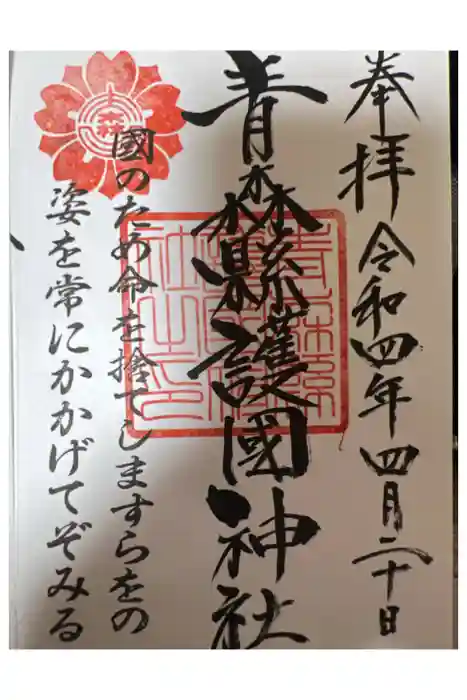 奉拝
令和四年四月二十日
青森縣護國神社
國のため命を捨てしますらをの
姿を常にかかげてぞみる
森